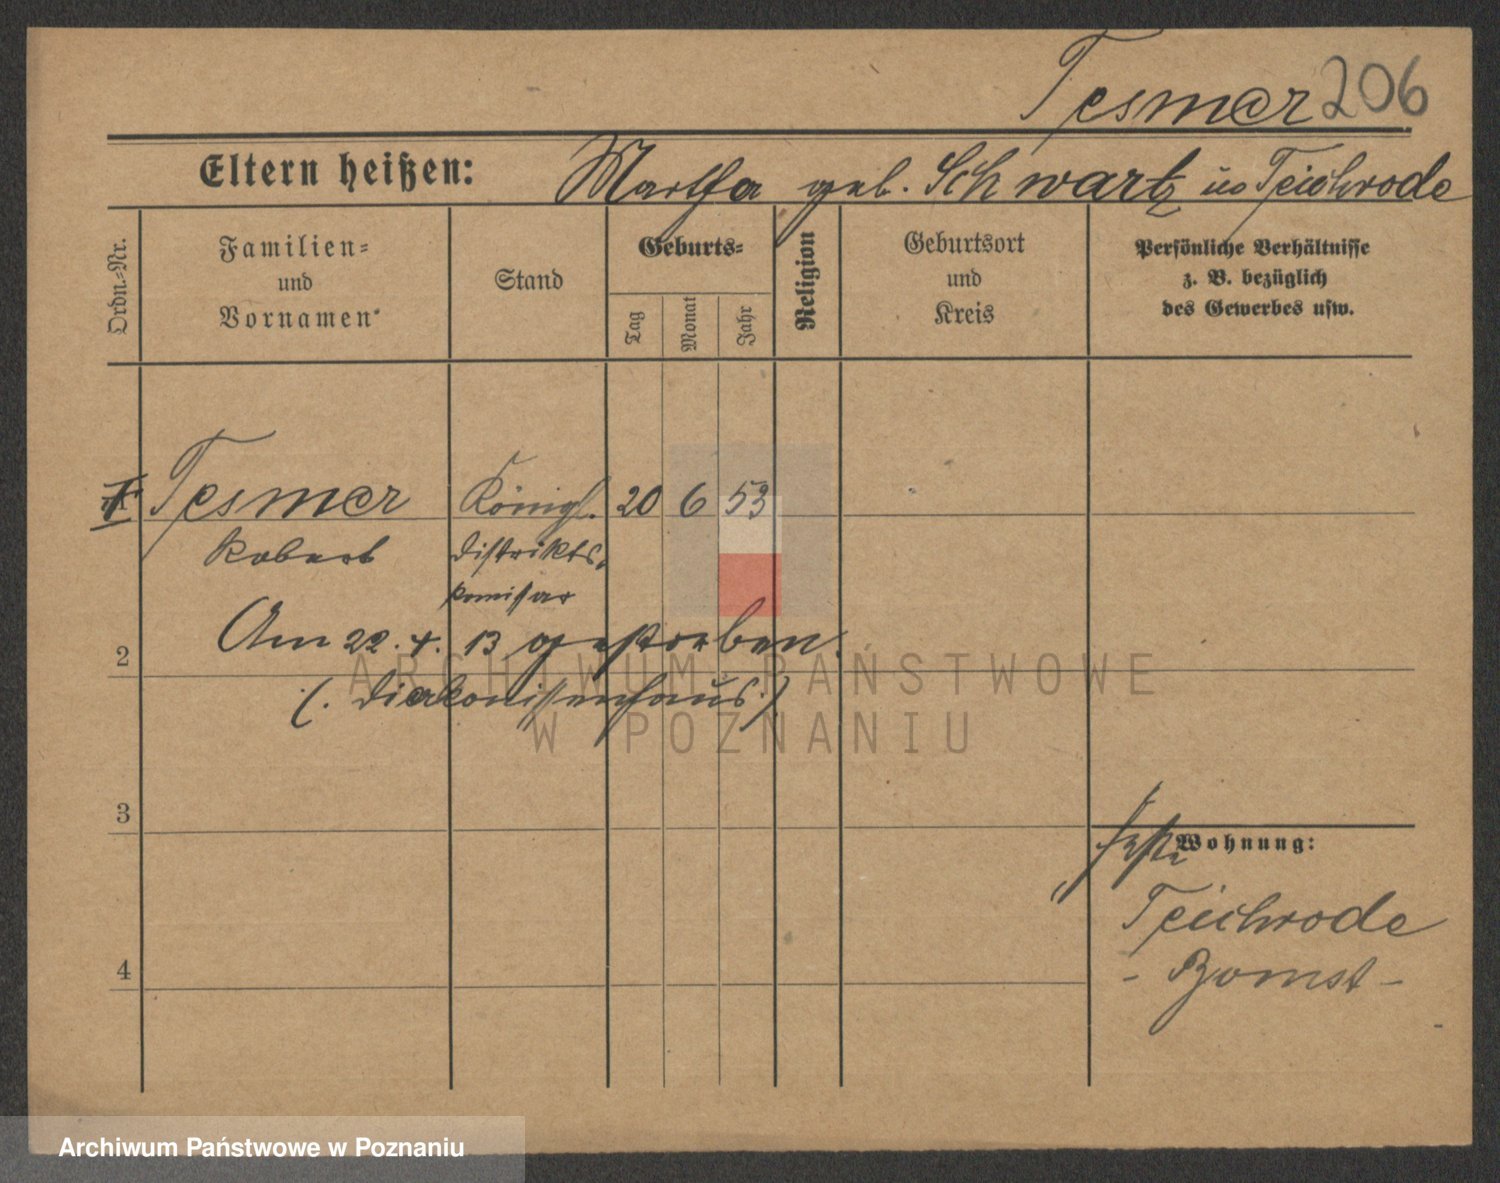 Tesmer 206
Eltern heißen: Martha geb. Schwartz in Teichrode
Ordn.=Nr.
Familien=
und
Vornamen
Stand
Geburts=
Tag
Monat
Jahr
Religion
Geburtsort
und
Kreis
Persönliche Verhältnisse
z. B. bezüglich
des Gewerbes usw.
1 Tesmer Königl. 20 6 53
Robert Distrikts.
komissar
Am 22. 4. 13 gestorben.
2
(. Diakonissenhaus.)
3
Wohnung:
Teichrode
- Bomst -
4
ARCHIWUM PAŃSTWOWE
W POZNANIU
Archiwum Państwowe w Poznaniu